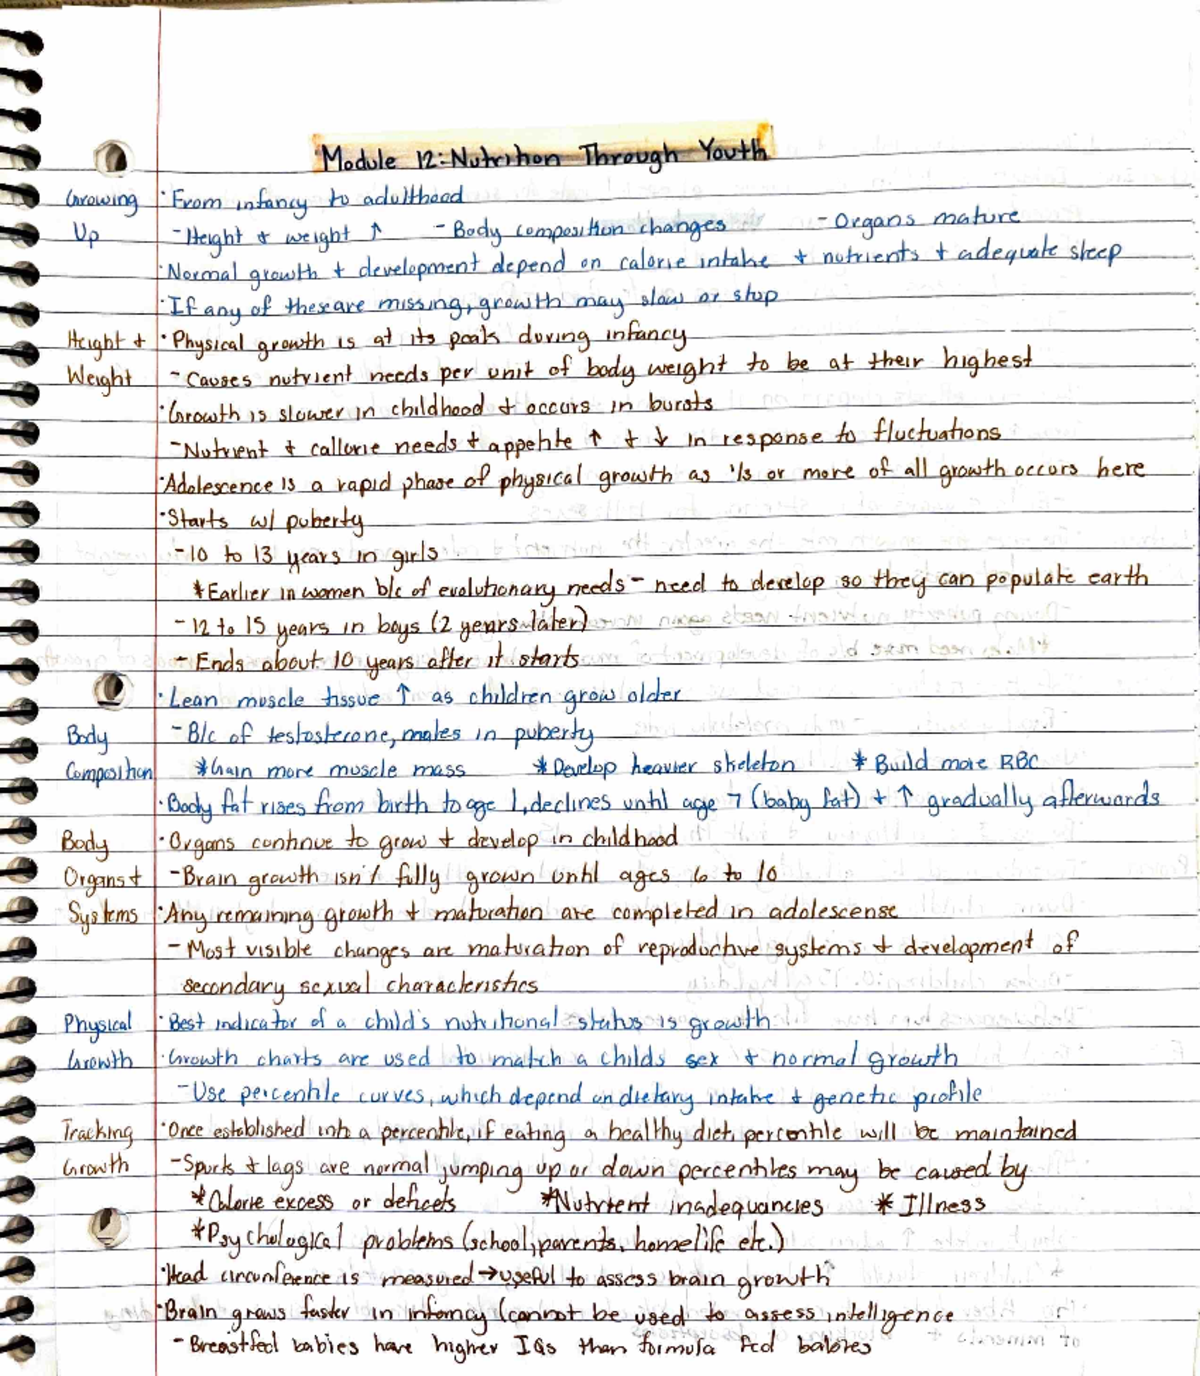 Module 12: Nutrition Through Youth
Growing · From infancy to adulthood
Up - Height + weight ↑ - Body composition changes - Organs mature
· Normal growth + development depend on calorie intake + nutrients + adequate sleep
· If any of these are missing, growth may slow or stop
Height + · Physical growth is at its peak during infancy
Weight - Causes nutrient needs per unit of body weight to be at their highest
· Growth is slower in childhood + occurs in bursts
- Nutrient + callorie needs + appetite ↑ + ↓ in response to fluctuations
· Adolescence is a rapid phase of physical growth as 1/3 or more of all growth occurs here
· Starts w/ puberty
- 10 to 13 years in girls
* Earlier in women b/c of evolutionary needs - need to develop so they can populate earth
- 12 to 15 years in boys (2 years later)
- Ends about 10 years after it starts
· Lean muscle tissue ↑ as children grow older
Body - B/c of testosterone, males in puberty
Composition * Gain more muscle mass * Develop heavier skeleton * Build more RBC
· Body fat rises from birth to age 1, declines until age 7 (baby fat) + ↑ gradually afterwards
Body · Organs continue to grow + develop in childhood
Organs + - Brain growth isn't fully grown until ages 6 to 10
Systems · Any remaining growth + maturation are completed in adolescense
- Most visible changes are maturation of reproductive systems + development of
secondary sexual characteristics
Physical · Best indicator of a child's nutritional status is growth
Growth · Growth charts are used to match a childs sex + normal growth
- Use percentile curves, which depend on dietary intake + genetic profile
Tracking · Once established into a percentile, if eating a healthy diet, percentile will be maintained
Growth - Spurts + lags are normal jumping up or down percentiles may be caused by
* Calorie excess or deficets * Nutrient inadequancies * Illness
* Psychological problems (school, parents, homelife etc.)
· Head circumference is measured → useful to assess brain growth
· Brain grows faster in infancy (cannot be used to assess intelligence
- Breastfed babies have higher IQs than formula fed babies